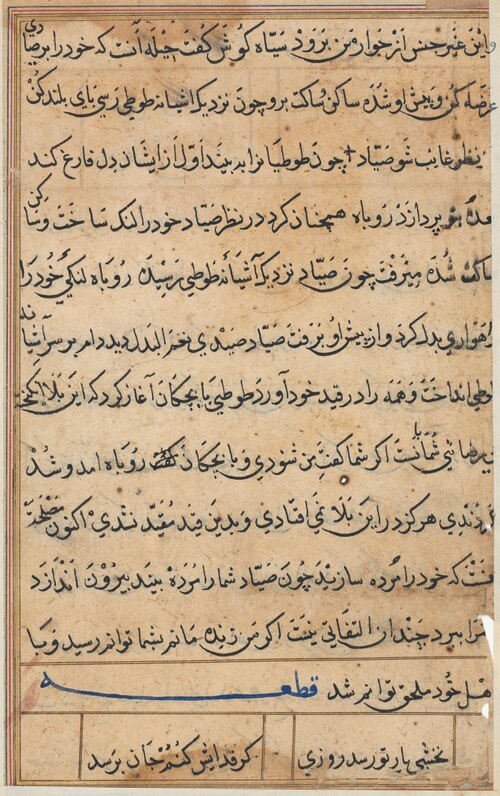 این غیر جنس از جوار من برود سیاه کوش کفت حیله آنست که خود را بر صیادی
عرضه کن و پیش او شده ساکن ساکت برو چون نزدیک اشیانه طوطی رسی بای بلند کن
نظر غایب شو صیاد چون طوطیانرا به بیند اول از ایشان دل فارغ کند
بتو پردازد روباه همچنان کرد در نظر صیاد خود را لنک ساخت و ساکن
ساکت شده میرفت چون صیاد نزدیک آشیانه طوطی رسید روباه لنکی خود را
راهواری بدل کرد و از پیش او برفت صیاد صیدی نعم البدل دید دام بر سر آشیانه
طوطی انداخت و همه را در قید خود آورد طوطی با بچکان آغاز کرد که این بلا
شماست اکر شما کفت من شنودی و با بچکان روباه امد و شد
نکردندی هرکز در این بلا نمی افتادی و بدین قید مقید نشدی اکنون مصلحت
که خود را مرده سازید چون صیاد شما را مرده بیند بیرون اندازد
مرا ببرد چندان التفاتی نیست اکر من زنده مانم بشما توانم رسید و با
اهل خود ملحق توانم شد قطعه
نخشبی یار تو رسد روزی
کر فدایش کنم جان برسد